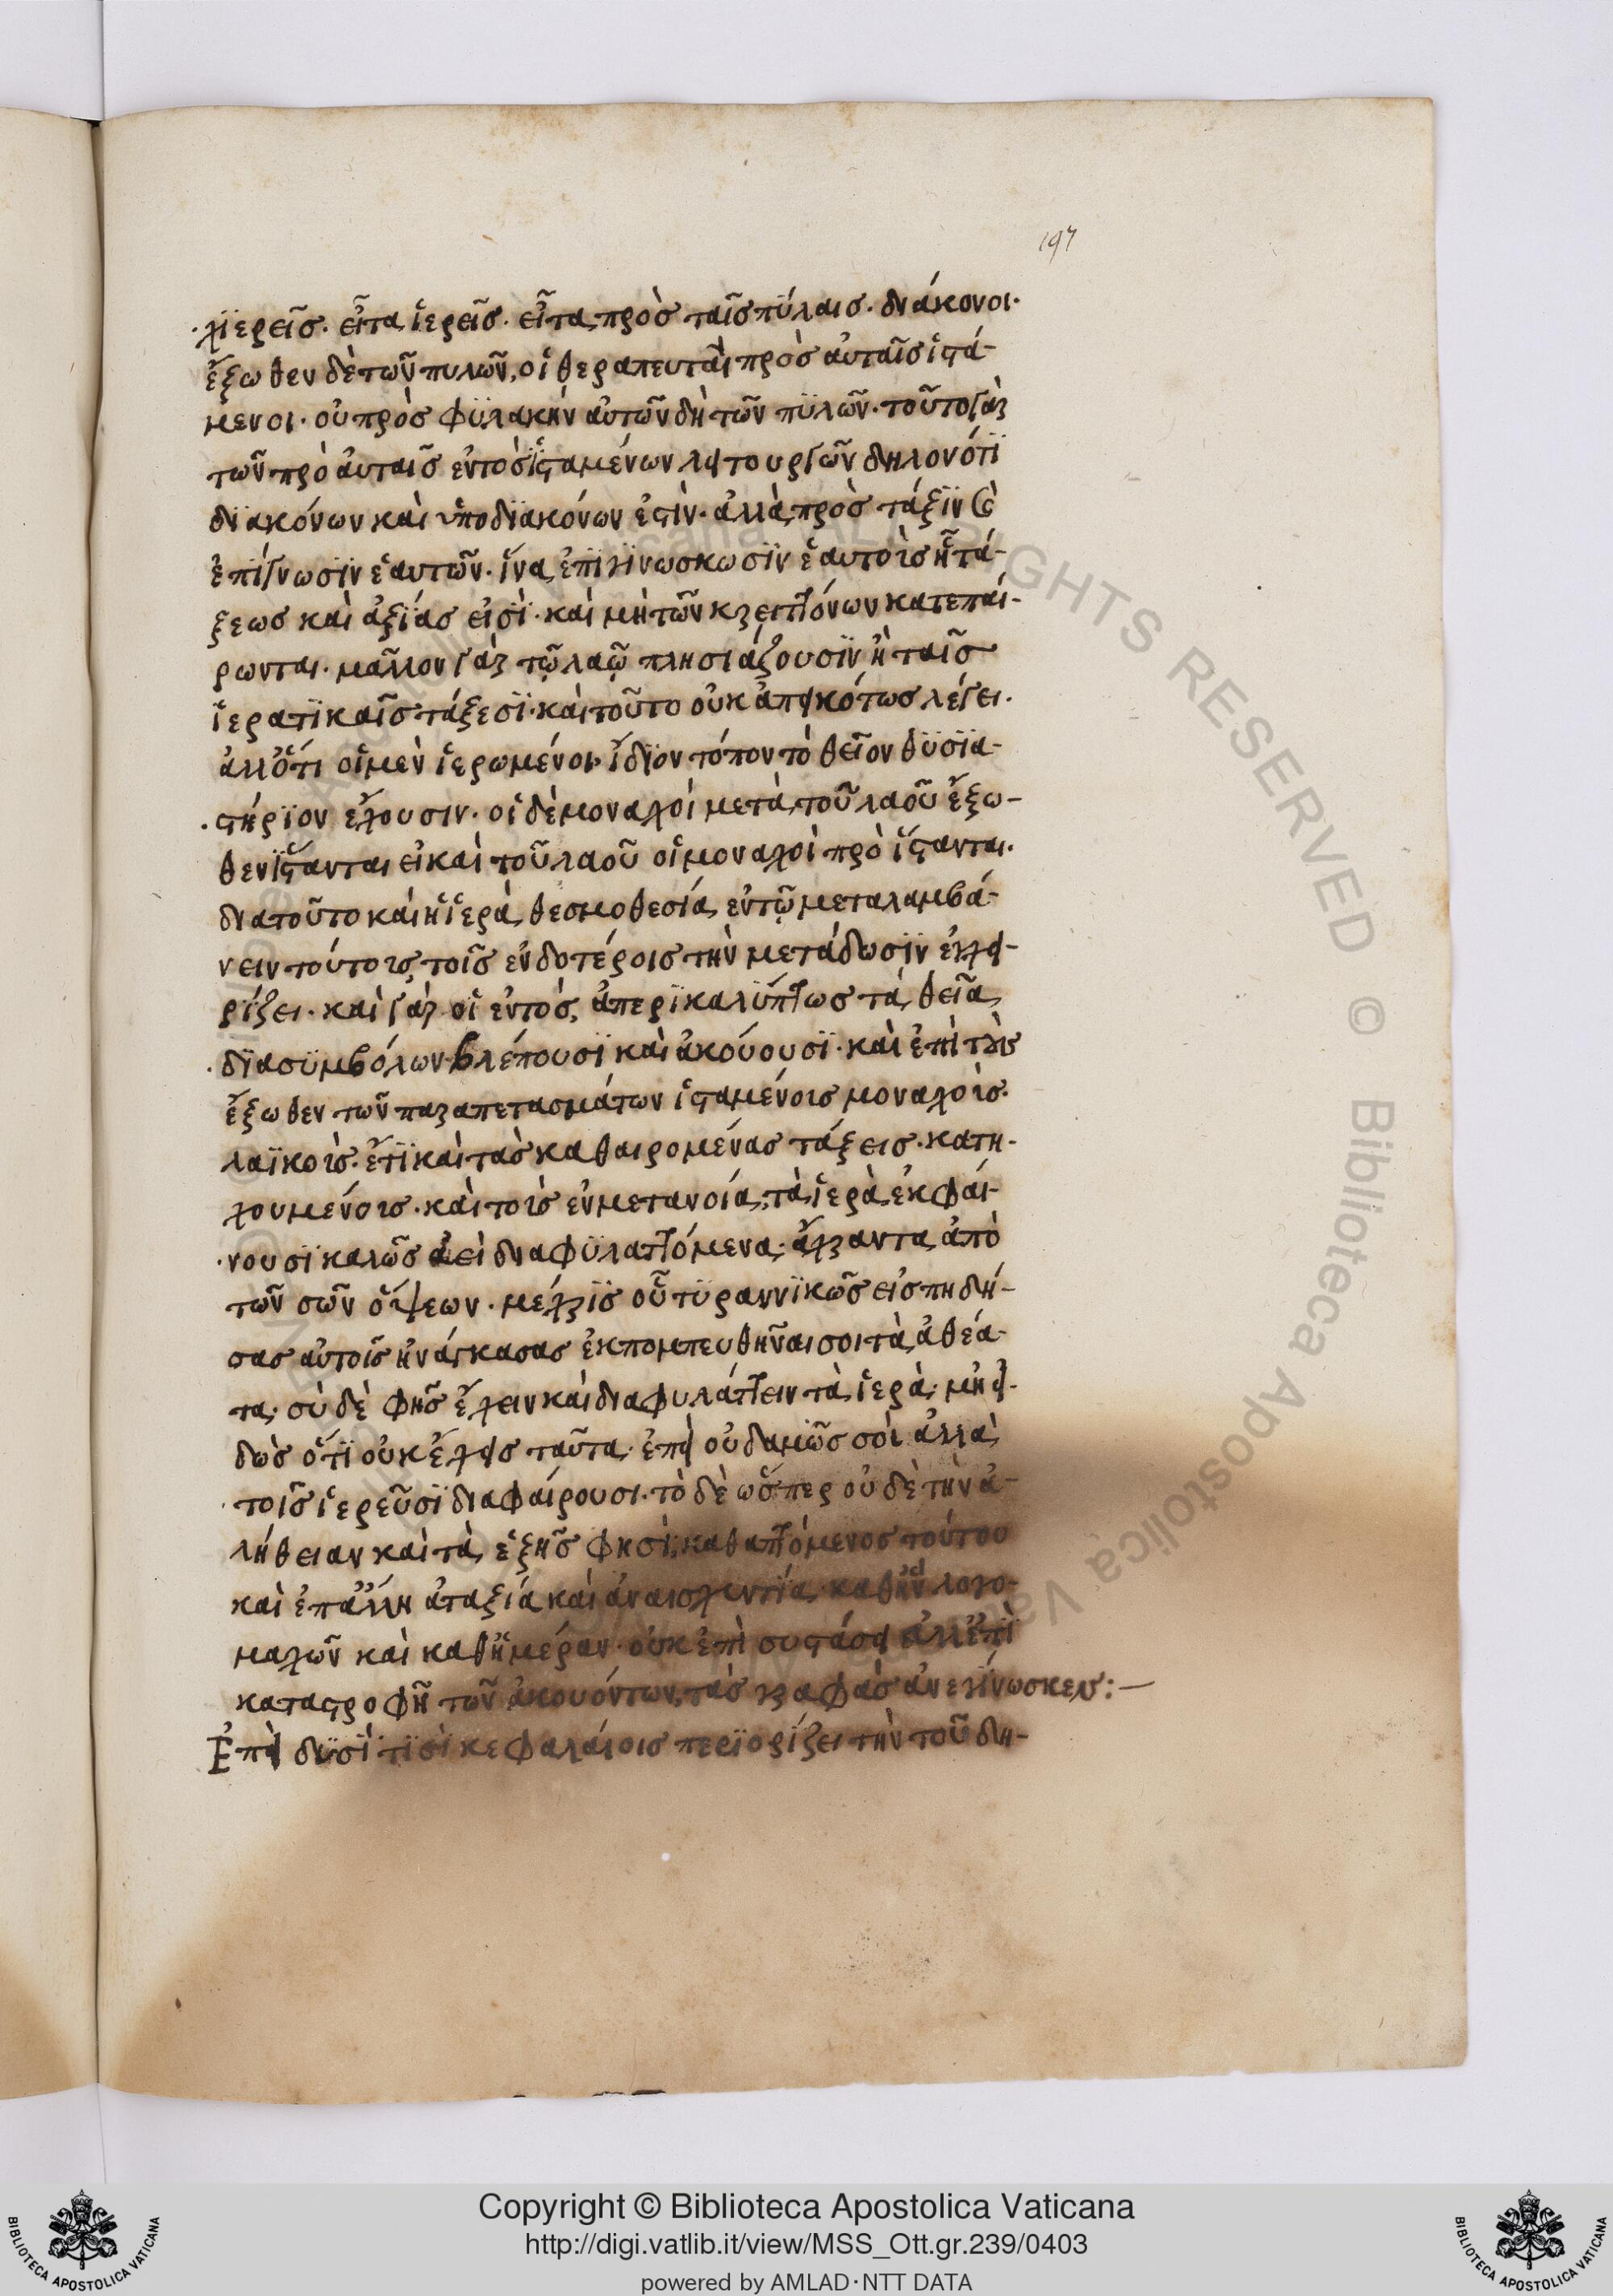 197
χϊερεῖς· εἶτα ἱερεῖς· εἶτα πρὸς ταῖς πύλαις· διάκονοι·
ἔξωθεν δὲ τῶν πυλῶν, οἱ θεραπευταὶ πρὸς αὐταῖς ἱστά-
μενοι· οὐ πρὸς φϋλακὴν αὐτῶν δὴ τῶν πϋλῶν· τοῦτο γὰρ
τῶν πρὸ αὐταῖς ἐντὸς ϊσταμένων λειτουργῶν δηλονότϊ
δϊακόνων καὶ ὑποδϊακόνων ἐστὶν· ἀλλὰ πρὸς τάξϊν καὶ
ἐπϊγνωσϊν ἑαυτῶν· ἵνα ἐπϊγϊνωσκωσϊν ἑαυτοὺς ἧς τά-
ξεως καὶ ἀξϊάς εἰσὶ· καὶ μὴ τῶν κρειττόνων κατεπαί-
ρωνται· μᾶλλον γὰρ τῷ λαῷ πλησιάζουσϊν ἢ ταῖς
ἱερατϊκαῖς τάξεσϊ· καὶ τοῦτο οὐκ ἀπεικότως λέγει·
ἀλλ' ὅτι οἱ μὲν ἱερωμένοι, ἴδϊον τόπον τὸ θεῖον θϋσϊα-
στήρϊον ἔχουσιν· οἱ δὲ μοναχοί μετὰ τοῦ λαοῦ ἔξω-
θεν ϊστανται εἰ καὶ τοῦ λαοῦ οἱ μοναχοὶ πρὸ ἵστανται·
διατοῦτο καὶ ἡ ἱερὰ θεσμοθεσία ἐν τῷ μεταλαμβά-
νειν τούτοις τοῖς ἐνδοτέροις τὴν μετάδωσϊν ἐγχει-
ρίζει· καὶ γὰρ οἱ ἐντὸς, ἀπερϊκαλϋπτως τὰ θεῖα
δϊασϋμβόλων βλέπουσϊ καὶ ἀκούουσϊ· καὶ ἐπὶ τοὺς
ἔξωθεν τῶν παραπετασμάτων ἱσταμένους μοναχοὺς·
λαϊκοὺς· ἔτϊ καὶ τὰς καθαιρομένας τάξεις· κατη-
χουμένους· καὶ τοὺς ἐν μετανοία, τὰ ἱερὰ ἐκφαί-
νουσϊ καλῶς ἀεὶ διαφϋλαττόμενα· ἄχραντα ἀπὸ
τῶν σῶν ὄψεων· μέχρϊς οὗ τϋραννϊκῶς εἰσπηδή-
σας αὐτοῖς ἠνάγκασας ἐκπομπευθῆναι σοι τὰ ἀθέα-
τα· σὺ δὲ φῆς ἔχειν καὶ διαφυλάττειν τὰ ἱερὰ· μὴ εἰ-
δὼς ὅτϊ οὐκ ἔχεις ταῦτα· ἐπεὶ οὐδαμῶς σοὶ ἀλλὰ
τοῖς ἱερεῦσϊ διαφαίρουσι· τὸ δὲ ὥσπερ οὐδὲ τὴν ἀ-
λήθειαν καὶ τὰ ἑξῆς φησὶ, καθαπτόμενος τούτου
καὶ ἐπ' ἄλλη ἀταξία καὶ ἀναισχυντία· καθ' ἣν λογο-
μαχῶν καὶ καθ' ἡμέραν· οὐκ ἐπὶ συστάσει ἀλλ' ἐπὶ
καταστροφῆ τῶν ἀκουόντων, τὰς γραφὰς ἀνεγίνωσκες:—
Ἐπεὶ δϋσὶ τϊσὶ κεφαλαίοις περϊορίζει τὴν τοῦ δη-
Copyright © Biblioteca Apostolica Vaticana
http://digi.vatlib.it/view/MSS_Ott.gr.239/0403
powered by AMLAD·NTT DATA